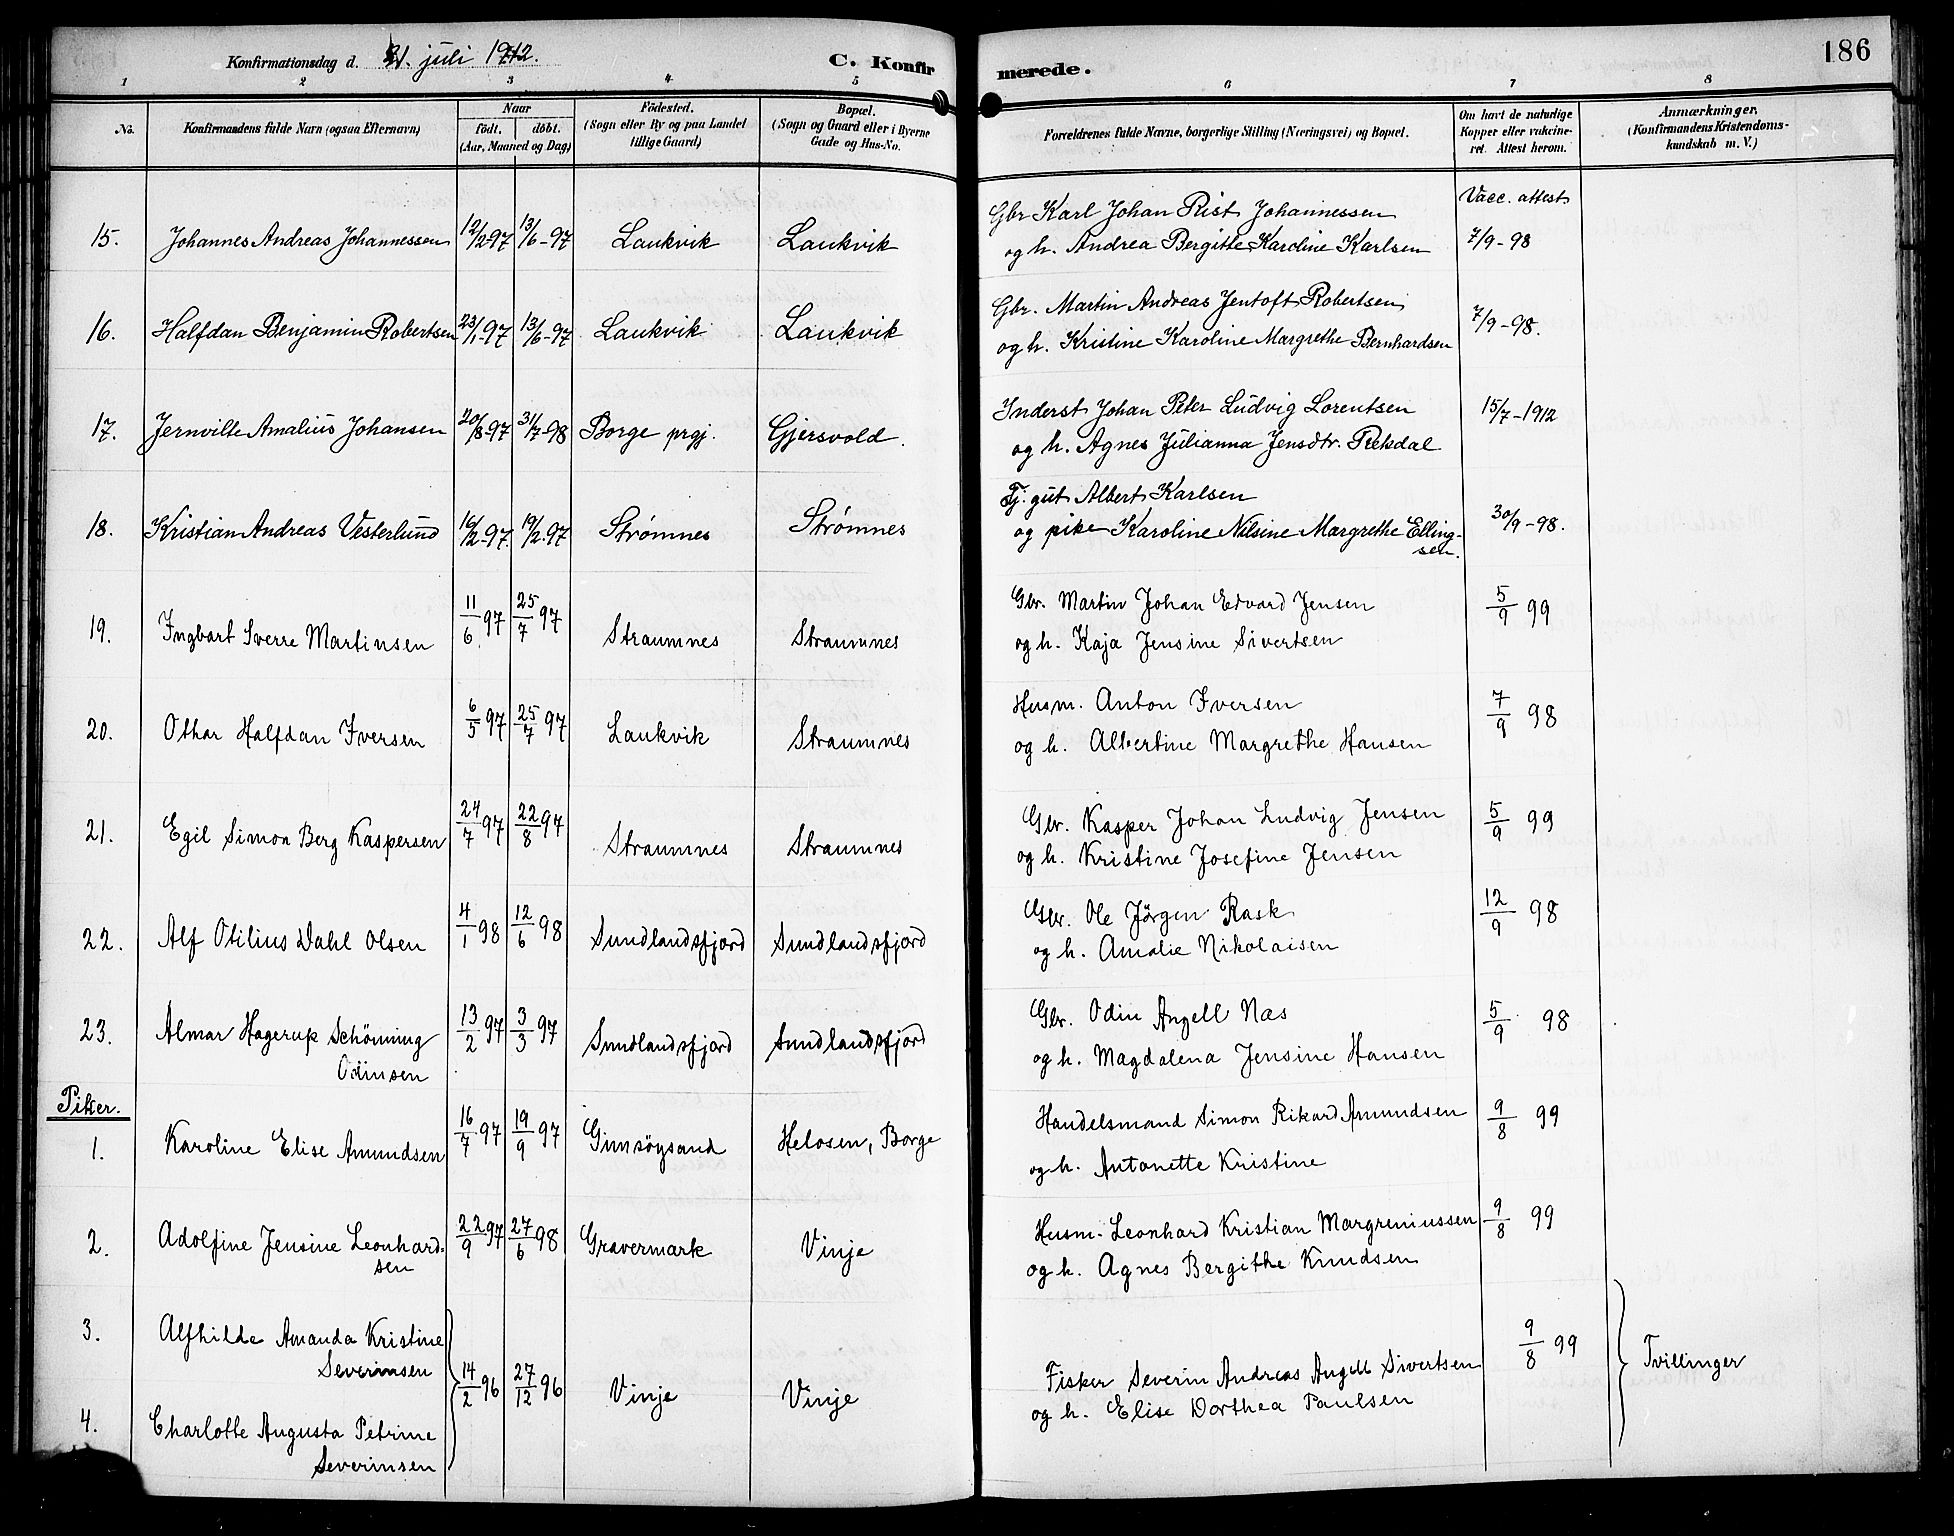 Konfirmationsdag d. 21. juli 1912. C. Konfirmerede. 186
1 2 3 4 5 6 7 8
No. Konfirmandens fulde Navn (ogsaa Efternavn) Naar født. døbt. (Aar, Maaned og Dag) Fødested. (Sogn eller By og paa Landet tillige Gaard) Bopæl. (Sogn og Gaard eller i Byerne Gade og Hus-No. Forældrenes fulde Navne, borgerlige Stilling (Næringsvei) og Bopæl. Om havt de naturlige Kopper eller vakcineret. Attest herom. Anmærkninger, (Konfirmandens Kristendomskundskab m. V.)
Vacc. attest
15. Johannes Andreas Johannessen 12/2-97 13/6-97 Laukvik Laukvik Gbr Karl Johan Rist Johannessen 7/9-98
og h. Andrea Bergitte Karoline Karlsen
16. Halfdan Benjamin Robertsen 23/1-97 13/6-97 Laukvik Laukvik Gbr. Martin Andreas Jentoft Robertsen 7/9-98.
og h. Kristine Karoline Margrethe Bernhardsen
17. Jernvilte Amalius Johansen 20/8-97 31/7-98 Borge prgj. Gjersvold. Inderst Johan Peter Ludvig Lorentsen 15/7-1912
og h. Agnes Julianna Jensdtr. Rekdal
18. Kristian Andreas Vesterlund 16/2-97. 19/2-97 Strømnes Strømnes Tj. gut Albert Karlsen 30/9-98.
og pike Karoline Nilsine Margrethe Elling-
sen.
19. Ingbart Sverre Martinsen 11/6 97 25/7 97 Straumnes Straumnes Gbr. Martin Johan Edvard Jensen 5/9 99
og h. Kaja Jensine Sivertsen
20. Othar Halfdan Iversen 6/5 97 25/7 97 Laukvik Straumnes Husm. Anton Iversen 7/9 98
og h. Albertine Margrethe Hansen
21. Egil Simon Berg Kaspersen 24/7 97 22/8 97 Straumnes Straumnes Gbr. Kasper Johan Ludvig Jensen 5/9 99
og h. Kristine Josefine Jensen
22. Alf Otilius Dahl Olsen 4/1 98 12/6 98 Sundlandsfjord Sundlandsfjord Gbr. Ole Jörgen Rask 12/9 98
og h. Amalie Nikolaisen
23. Almar Hagerup Schönning 13/2 97 3/3 97 Sundlandsfjord Sundlandsfjord Gbr. Odin Angell Næs 5/9 98
Odinsen og h. Magdalena Jensine Hansen
Piker.
1. Karoline Elise Amundsen 16/7 97 19/9 97 Gimsöysand Helosen, Borge Handelsmand Simon Rikard Amundsen 9/8 99
og h. Antonette Kristine
2. Adolfine Jensine Leonhard- 22/9 97 27/6 98 Gravermark Vinje Husm. Leonhard Kristian Margreniussen 9/8 99
sen og h. Agnes Bergithe Knudsen
3. Alfhilde Amanda Kristine
Severinsen 14/2 96 27/12 96 Vinje Vinje Fisker Severin Andreas Angell Sivertsen 9/8 99 Tvillinger
og h. Elise Dorthea Paulsen
4. Charlotte Augusta Petrine
Severinsen